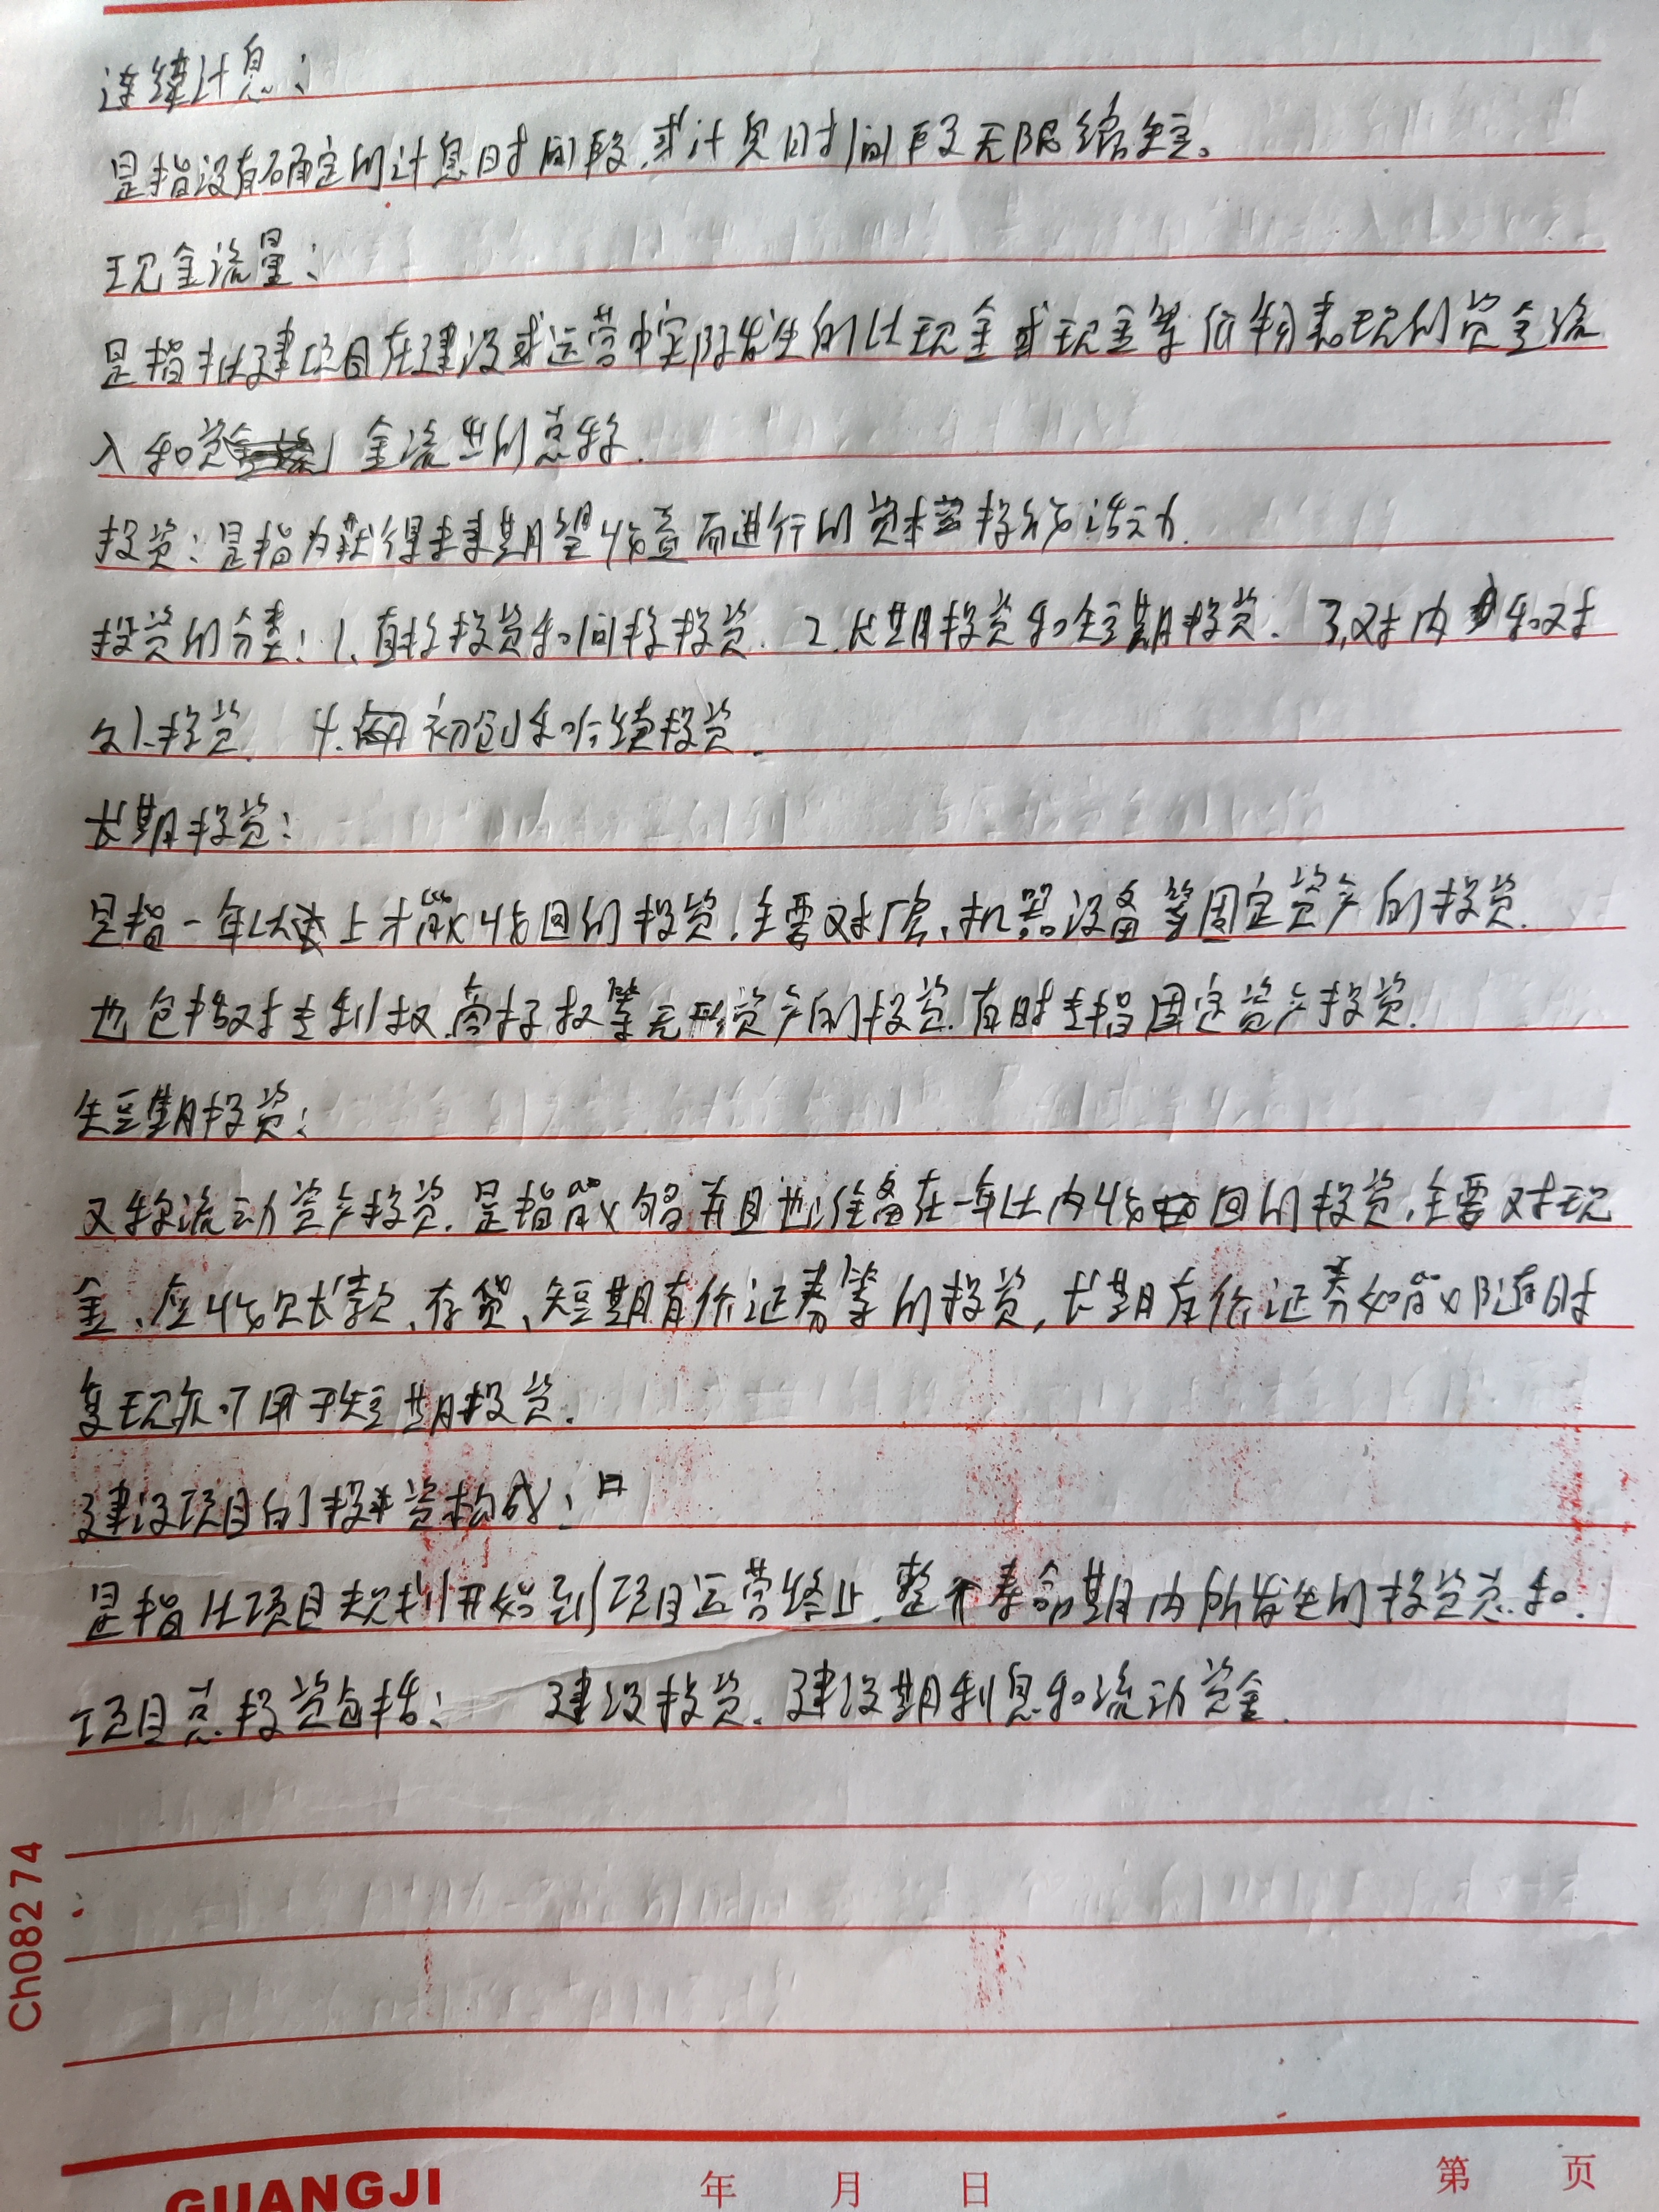 连续计息：
是指没有确定的计息时间段，或计息时间段无限缩短。
现金流量：
是指拟建项目在建设或运营中实际发生的以现金或现金等价物表现的资金流
入和资金流出的总称.
投资：是指为获得未来期望收益而进行的资本投放活动.
投资的分类：1、直接投资和间接投资. 2.长期投资和短期投资. 3.对内和对
外投资. 4.初创和后续投资.
长期投资：
是指一年以上才能收回的投资，主要对厂房、机器设备等固定资产的投资.
也包括对专利权、商标权等无形资产的投资.有时专指固定资产投资.
短期投资：
又称流动资产投资.是指能够并且也准备在一年以内收回的投资，主要对现
金、应收欠长款、存货、短期有价证券等的投资，长期有价证券如能随时
变现亦可用于短期投资.
建设项目的投资构成：
是指从项目规划开始到项目运营终止，整个寿命期内所发生的投资总和.
项目总投资包括： 建设投资、建设期利息和流动资金.
Ch08274
GUANGJI 年 月 日 第 页